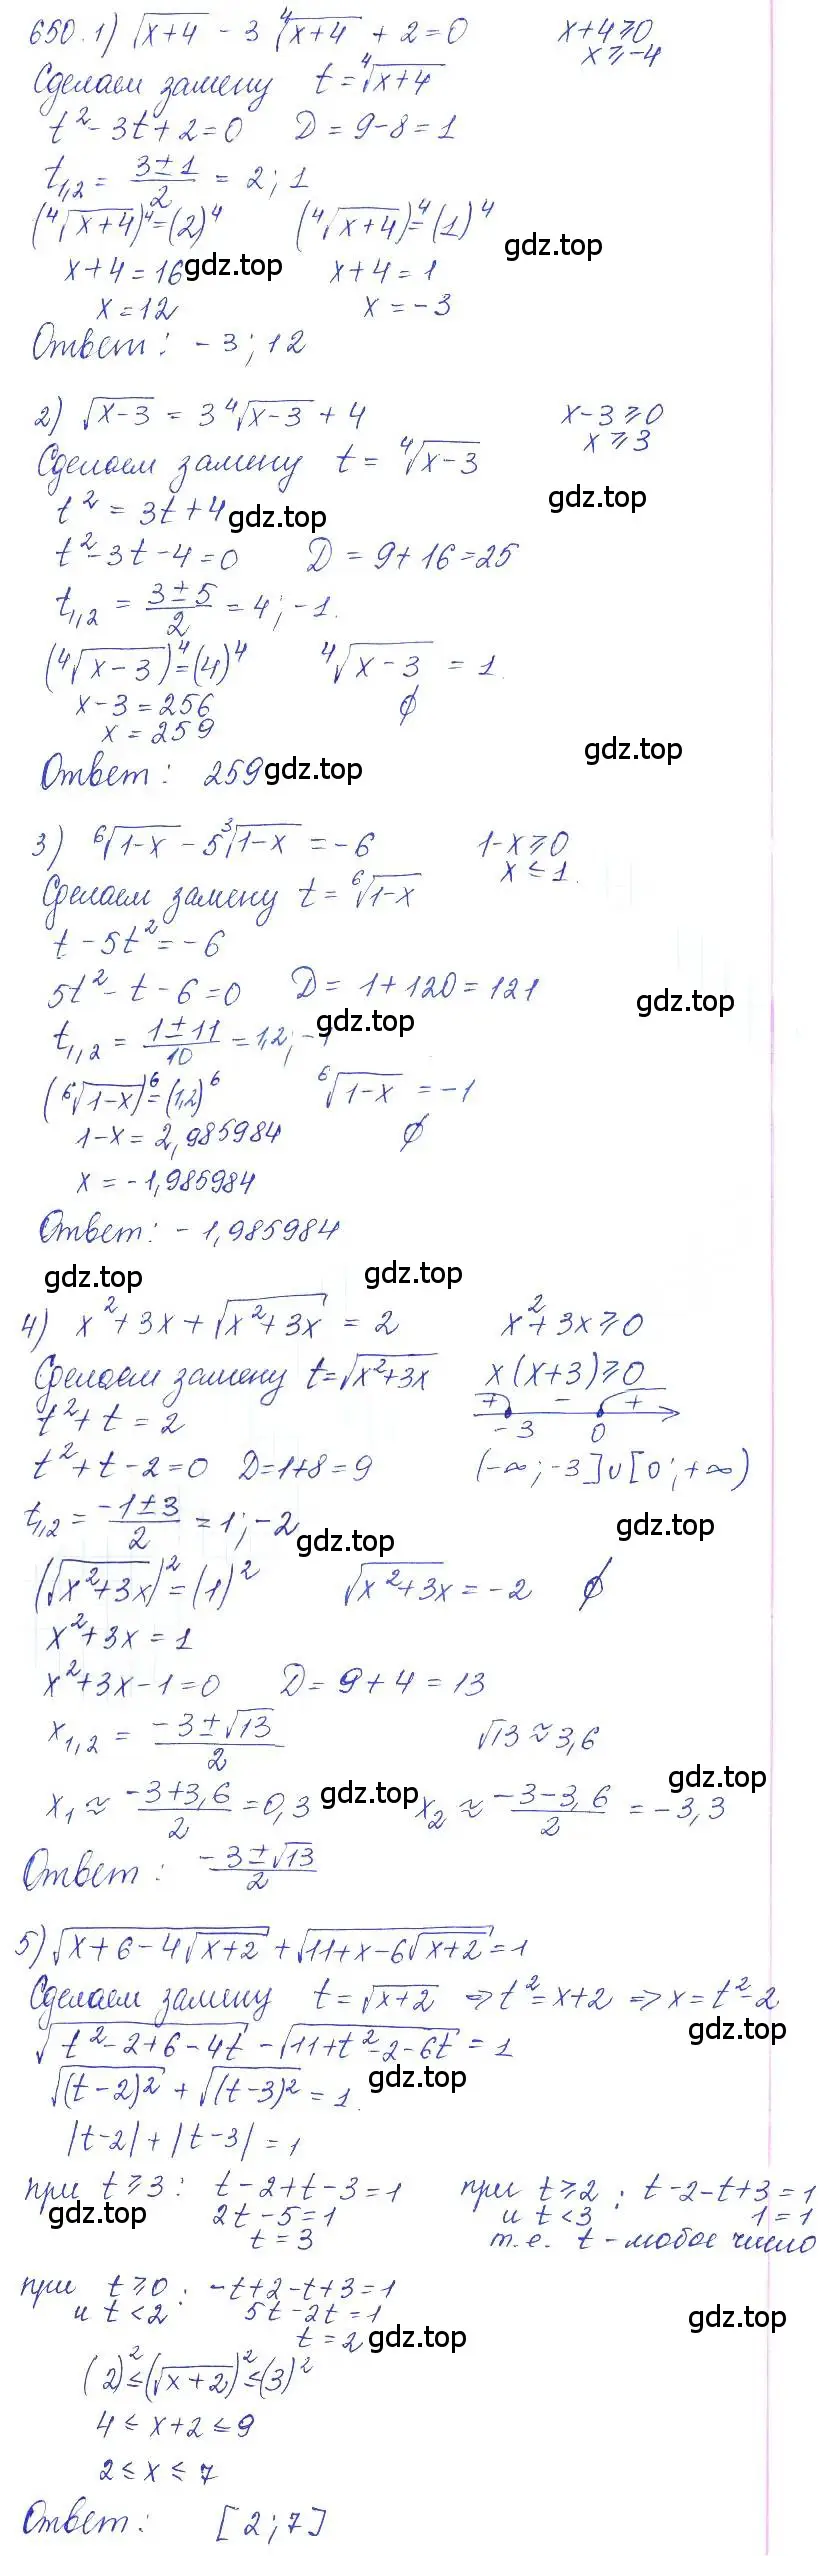 650. 1) √(x+4) - 3 ⁴√(x+4) + 2 = 0    x+4≥0
x≥-4
Сделаем замену t = ⁴√(x+4)
t² - 3t + 2 = 0    D = 9-8 = 1
t₁,₂ = (3±1)/2 = 2; 1
(⁴√(x+4))⁴ = (2)⁴    (⁴√(x+4))⁴ = (1)⁴
gdz.top
x+4 = 16    gdz.top    x+4 = 1
x = 12    x = -3
Ответ: -3; 12
2) √(x-3) = 3 ⁴√(x-3) + 4    x-3≥0
x≥3
Сделаем замену t = ⁴√(x-3)
gdz.top
t² = 3t+4    gdz.top
t² - 3t - 4 = 0    D = 9+16 = 25
t₁,₂ = (3±5)/2 = 4; -1.
(⁴√(x-3))⁴ = (4)⁴    ⁴√(x-3) = 1.
x-3 = 256    ∅
x = 259
gdz.top
Ответ: 259    gdz.top
3) ⁶√(1-x) - 5 ³√(1-x) = -6    1-x≥0
x≤1.
Сделаем замену t = ⁶√(1-x)
t - 5t² = -6
5t² - t - 6 = 0    D = 1+120 = 121
gdz.top
t₁,₂ = (1±11)/10 = 1,2; -1    gdz.top
(⁶√(1-x))⁶ = (1,2)⁶    ⁶√(1-x) = -1
1-x = 2,985984    ∅
x = -1,985984
Ответ: -1,985984
gdz.top    gdz.top
4) x²+3x + √(x²+3x) = 2    x²+3x≥0
Сделаем замену t = √(x²+3x)    x(x+3)≥0
t²+t = 2    + - +
-3 0
t²+t-2 = 0    D=1+8=9    (-∞; -3]∪[0; +∞)
t₁,₂ = (-1±3)/2 = 1; -2    gdz.top    gdz.top
(√(x²+3x))² = (1)²    √(x²+3x) = -2    ∅
x²+3x = 1
x²+3x-1 = 0    D = 9+4 = 13
x₁,₂ = (-3±√13)/2    √13 ≈ 3,6
gdz.top
x₁ ≈ (-3+3,6)/2 = 0,3    gdz.top    x₂ ≈ (-3-3,6)/2 = -3,3
Ответ: (-3±√13)/2
5) √(x+6-4√(x+2)) + √(11+x-6√(x+2)) = 1
Сделаем замену t = √(x+2) ⇒ t² = x+2 ⇒ x = t²-2
gdz.top
√(t²-2+6-4t) - √(11+t²-2-6t) = 1
√((t-2)²) + √((t-3)²) = 1.    gdz.top
|t-2| + |t-3| = 1
при t≥3: t-2+t-3=1    при t≥2 ; t-2-t+3=1
gdz.top    2t-5=1    и t<3    1=1
t=3    т.е. t - любое число
при t≥0: -t+2-t+3=1
и t<2    5t-2t=1    gdz.top
t=2    gdz.top
(2)² ≤ (√(x+2))² ≤ (3)²
4 ≤ x+2 ≤ 9
2 ≤ x ≤ 7
Ответ: [2; 7]